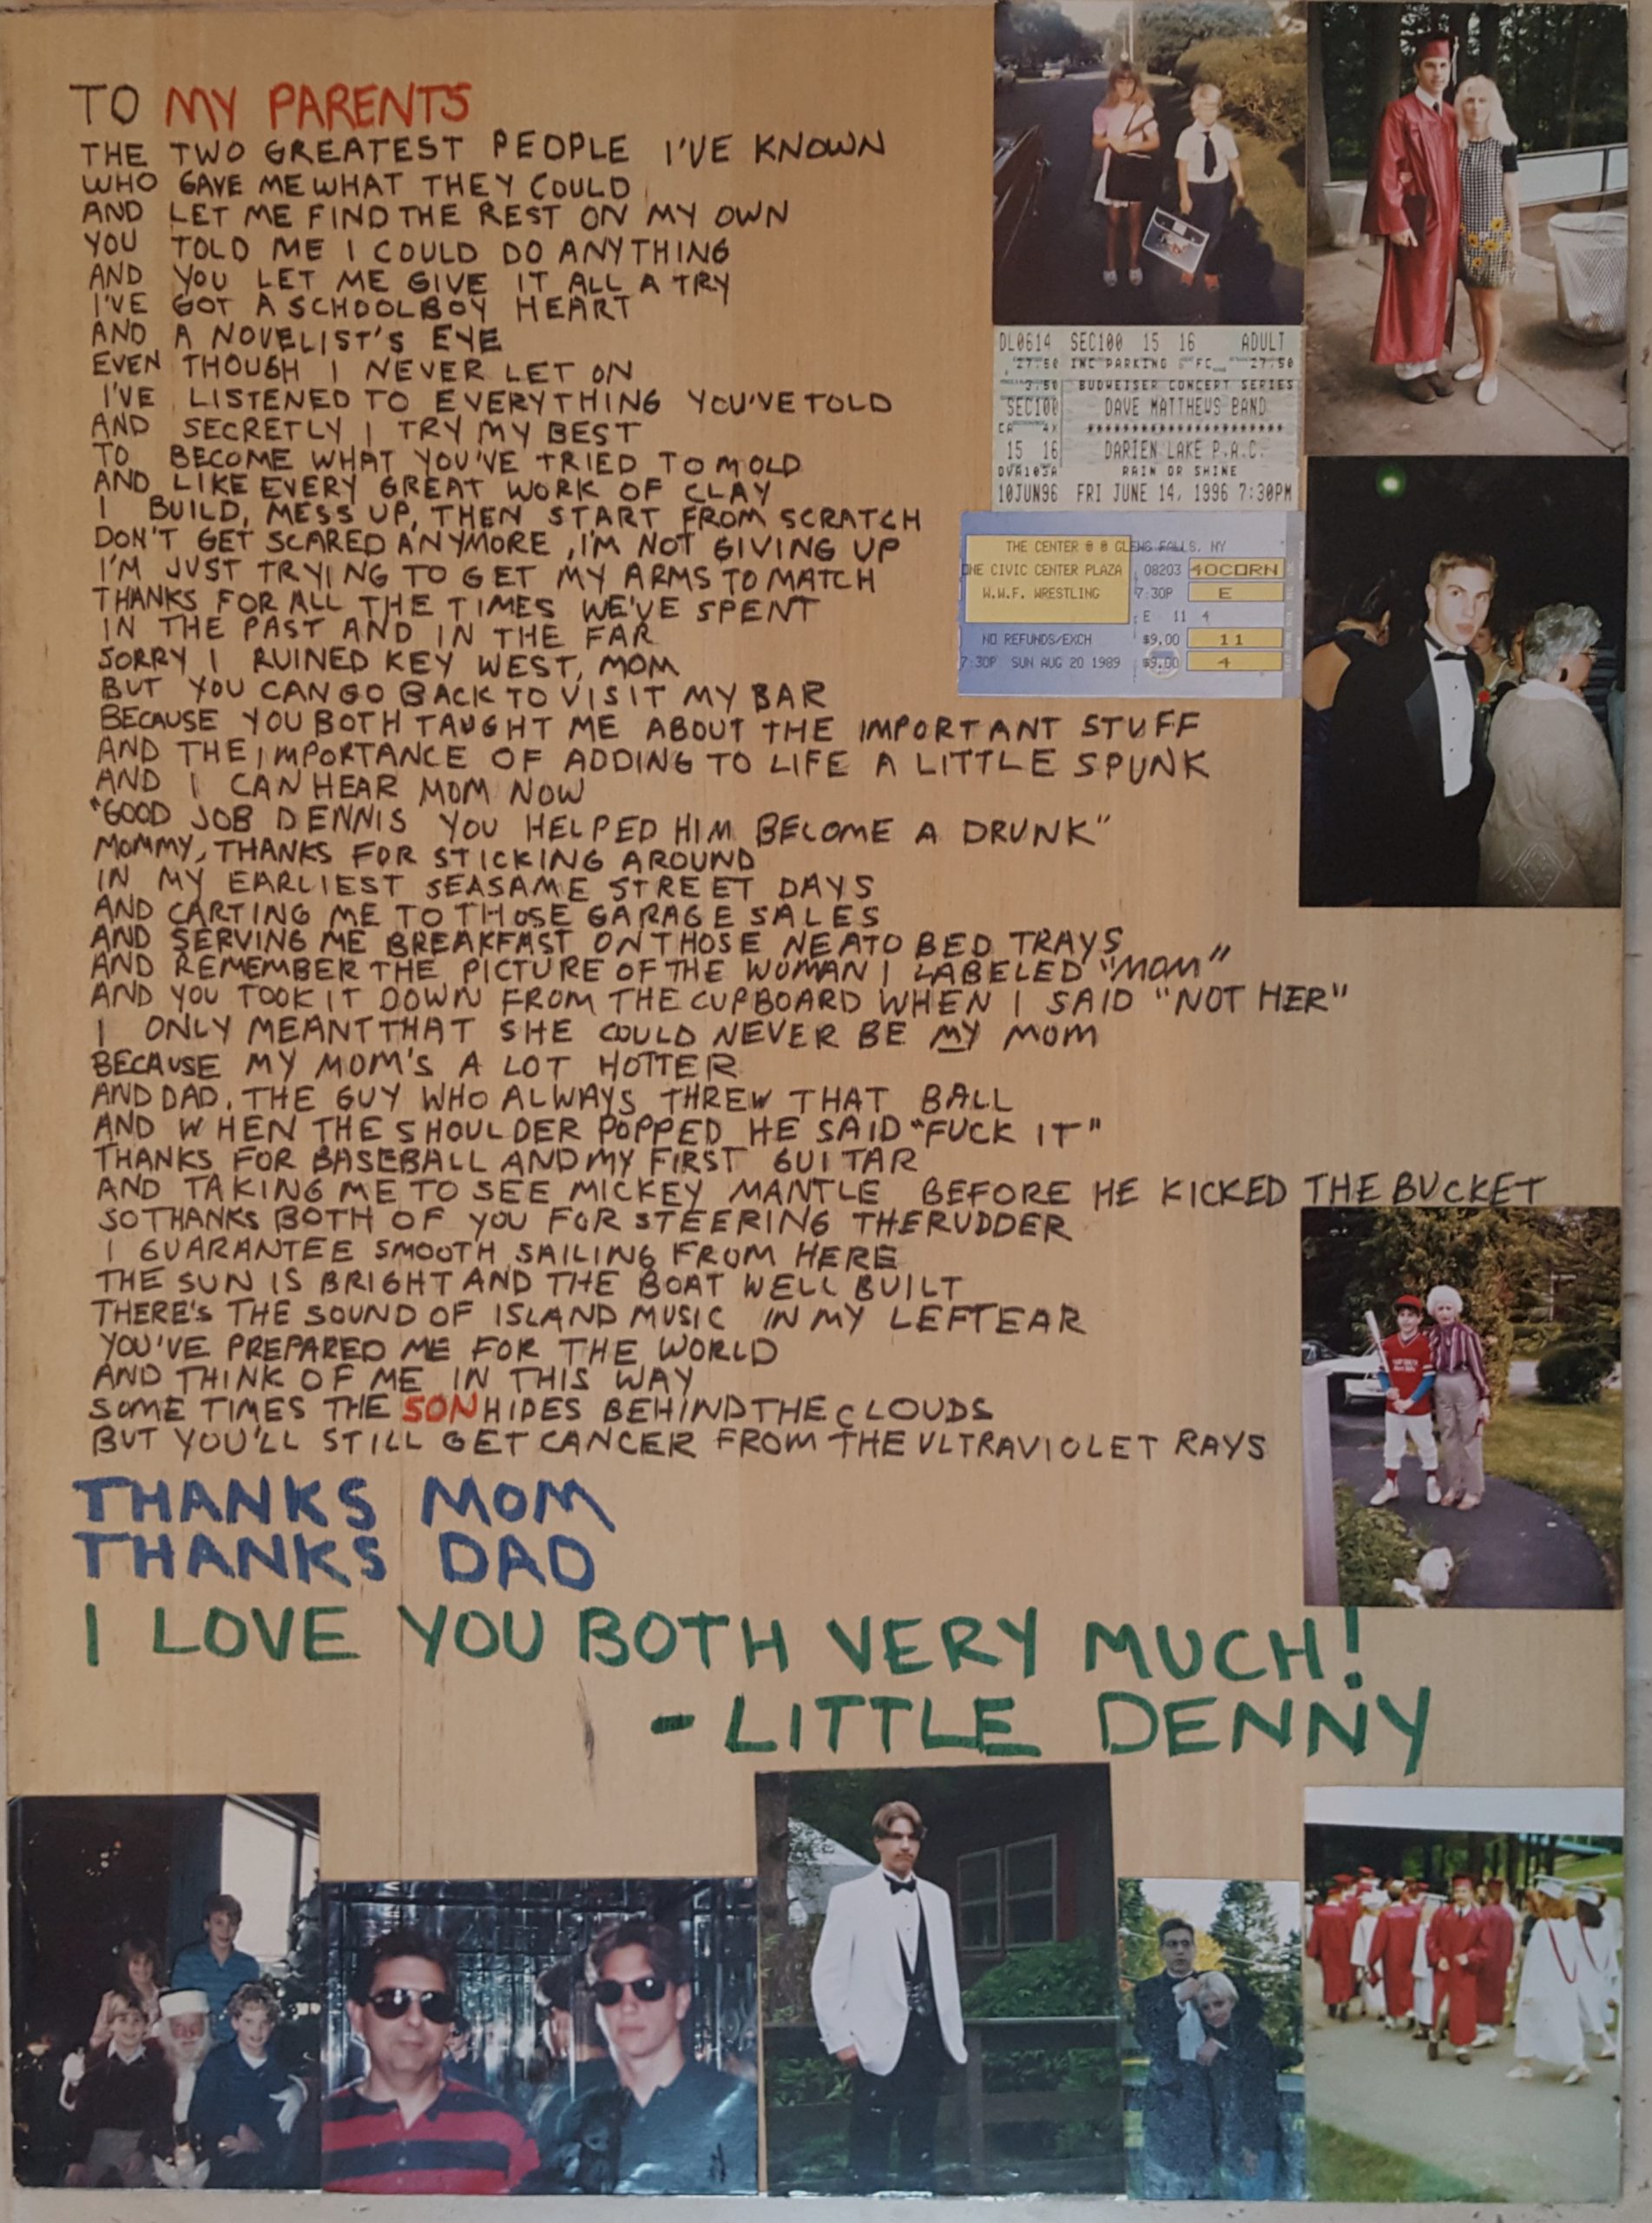 TO MY PARENTS
THE TWO GREATEST PEOPLE I'VE KNOWN
WHO GAVE ME WHAT THEY COULD
AND LET ME FIND THE REST ON MY OWN
YOU TOLD ME I COULD DO ANYTHING
AND YOU LET ME GIVE IT ALL A TRY
I'VE GOT A SCHOOLBOY HEART
AND A NOVELIST'S EYE
EVEN THOUGH I NEVER LET ON
I'VE LISTENED TO EVERYTHING YOU'VE TOLD
AND SECRETLY I TRY MY BEST
TO BECOME WHAT YOU'VE TRIED TO MOLD
AND LIKE EVERY GREAT WORK OF CLAY
I BUILD, MESS UP, THEN START FROM SCRATCH
DON'T GET SCARED ANYMORE, I'M NOT GIVING UP
I'M JUST TRYING TO GET MY ARMS TO MATCH
THANKS FOR ALL THE TIMES WE'VE SPENT
IN THE PAST AND IN THE FAR
SORRY I RUINED KEY WEST, MOM
BUT YOU CAN GO BACK TO VISIT MY BAR
BECAUSE YOU BOTH TAUGHT ME ABOUT THE IMPORTANT STUFF
AND THE IMPORTANCE OF ADDING TO LIFE A LITTLE SPUNK
AND I CAN HEAR MOM NOW
"GOOD JOB DENNIS YOU HELPED HIM BECOME A DRUNK"
MOMMY, THANKS FOR STICKING AROUND
IN MY EARLIEST SEASAME STREET DAYS
AND CARTING ME TO THOSE GARAGE SALES
AND SERVING ME BREAKFAST ON THOSE NEATO BED TRAYS
AND REMEMBER THE PICTURE OF THE WOMAN I LABELED "MOM"
AND YOU TOOK IT DOWN FROM THE CUPBOARD WHEN I SAID "NOT HER"
I ONLY MEANT THAT SHE COULD NEVER BE MY MOM
BECAUSE MY MOM'S A LOT HOTTER
AND DAD, THE GUY WHO ALWAYS THREW THAT BALL
AND WHEN THE SHOULDER POPPED HE SAID "FUCK IT"
THANKS FOR BASEBALL AND MY FIRST GUITAR
AND TAKING ME TO SEE MICKEY MANTLE BEFORE HE KICKED THE BUCKET
SO THANKS BOTH OF YOU FOR STEERING THE RUDDER
I GUARANTEE SMOOTH SAILING FROM HERE
THE SUN IS BRIGHT AND THE BOAT WELL BUILT
THERE'S THE SOUND OF ISLAND MUSIC IN MY LEFT EAR
YOU'VE PREPARED ME FOR THE WORLD
AND THINK OF ME IN THIS WAY
SOME TIMES THE SON HIDES BEHIND THE CLOUDS
BUT YOU'LL STILL GET CANCER FROM THE ULTRAVIOLET RAYS
THANKS MOM
THANKS DAD
I LOVE YOU BOTH VERY MUCH!
- LITTLE DENNY
DL0614 SEC100 15 16 ADULT
27.50 INC PARKING FC 27.50
3.50 BUDWEISER CONCERT SERIES
SEC100 DAVE MATTHEWS BAND
CA 4X **********************
15 16 DARIEN LAKE P.A.C.
RAIN OR SHINE
10JUN96 FRI JUNE 14, 1996 7:30PM
THE CENTER @ @ GLENS FALLS, NY
ONE CIVIC CENTER PLAZA 08203 40CORN
W.W.F. WRESTLING 7:30P E
E 11 4
NO REFUNDS/EXCH $9.00 11
7:30P SUN AUG 20 1989 $9.00 4